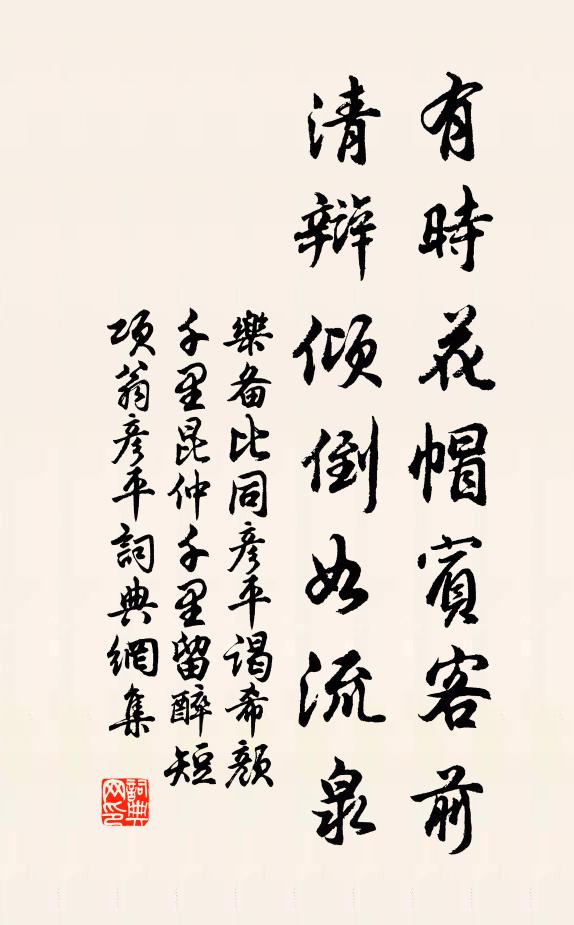 有時花帽賓客前
清辯傾倒如流泉
樂备比同彦平謁希顏
千里昆仲千里留醉短
項翁彦平詞典網集
詞典网印